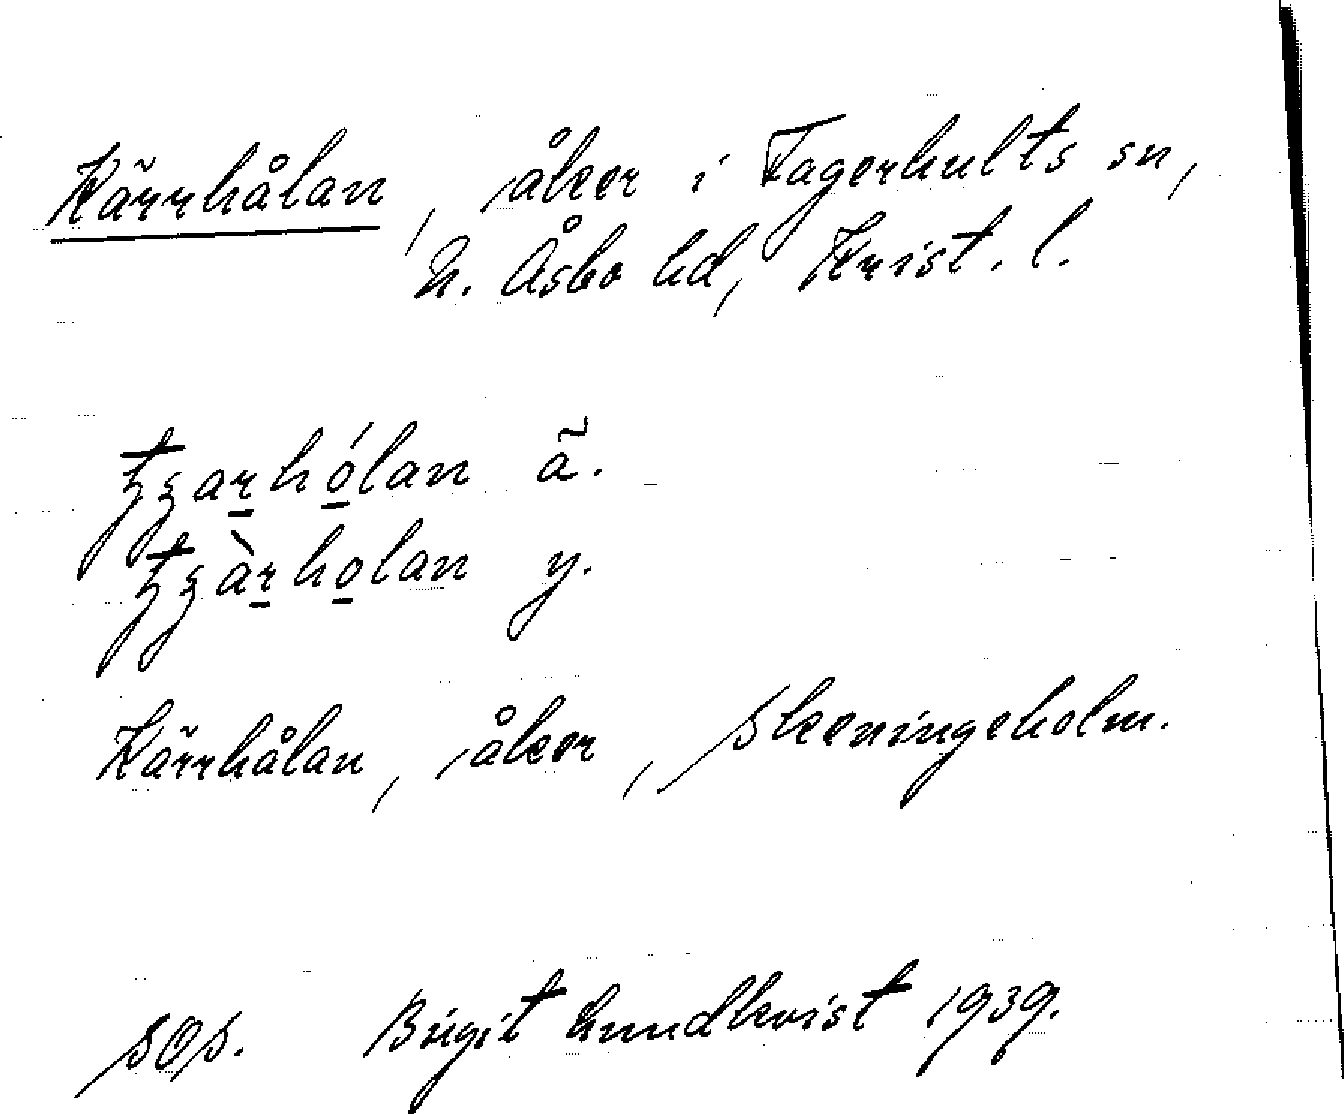 Kärrhålan, åker i Fagerhults sn,
N. Åsbo hd, Krist. l.
ä.
y.
Kärrhålan, åker, Skeningeholm.
SOS. Birgit Lundkvist 1939.